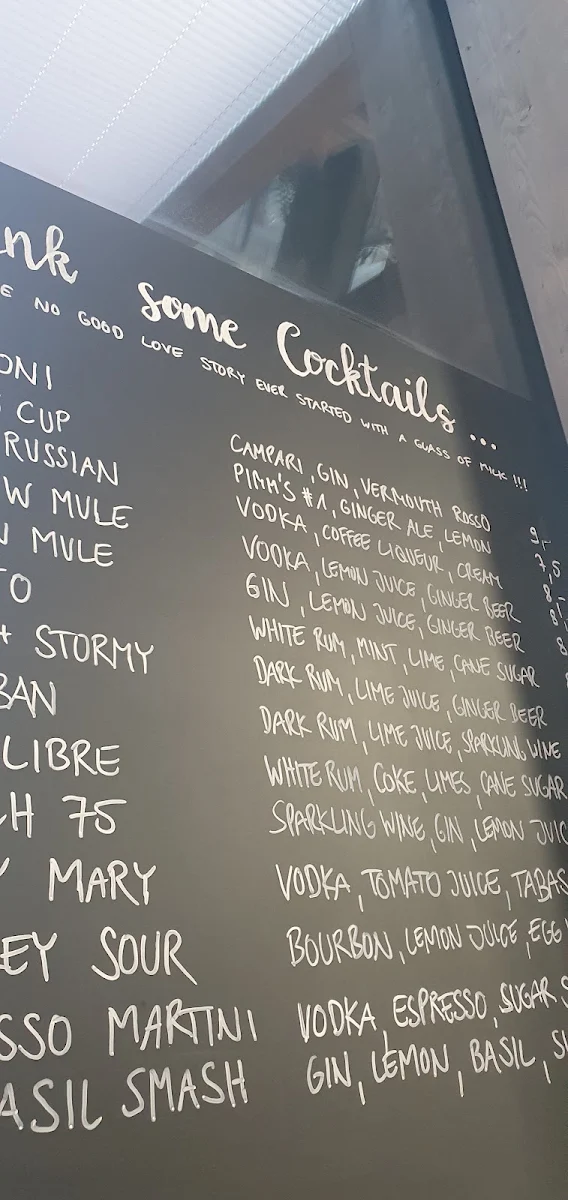 nk some Cocktails...
E NO GOOD LOVE STORY EVER STARTED WITH A GLASS OF MILK !!!
ONI CAMPARI, GIN, VERMOUTH ROSSO 9,-
CUP PIMM'S #1, GINGER ALE, LEMON 7,5
RUSSIAN VODKA, COFFEE LIQUEUR, CREAM 8,-
W MULE VODKA, LEMON JUICE, GINGER BEER 8,
N MULE GIN, LEMON JUICE, GINGER BEER 8
TO WHITE RUM, MINT, LIME, CANE SUGAR
+ STORMY DARK RUM, LIME JUICE, GINGER BEER
BAN DARK RUM, LIME JUICE, SPARKLING WINE
LIBRE WHITE RUM, COKE, LIMES, CANE SUGAR
CH 75 SPARKLING WINE, GIN, LEMON JUIC
Y MARY VODKA, TOMATO JUICE, TABAS
EY SOUR BOURBON, LEMON JUICE, EGG
SSO MARTINI VODKA, ESPRESSO, SUGAR S
ASIL SMASH GIN, LEMON, BASIL, SU